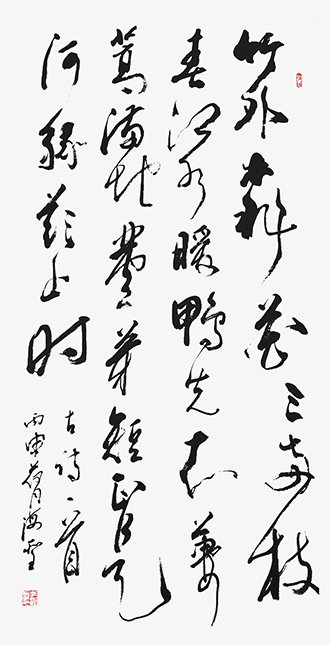 竹外桃花三两枝
春江水暖鸭先知蒌
蒿满地芦芽短正是
河豚欲上时
古诗一首
丙申荷月海